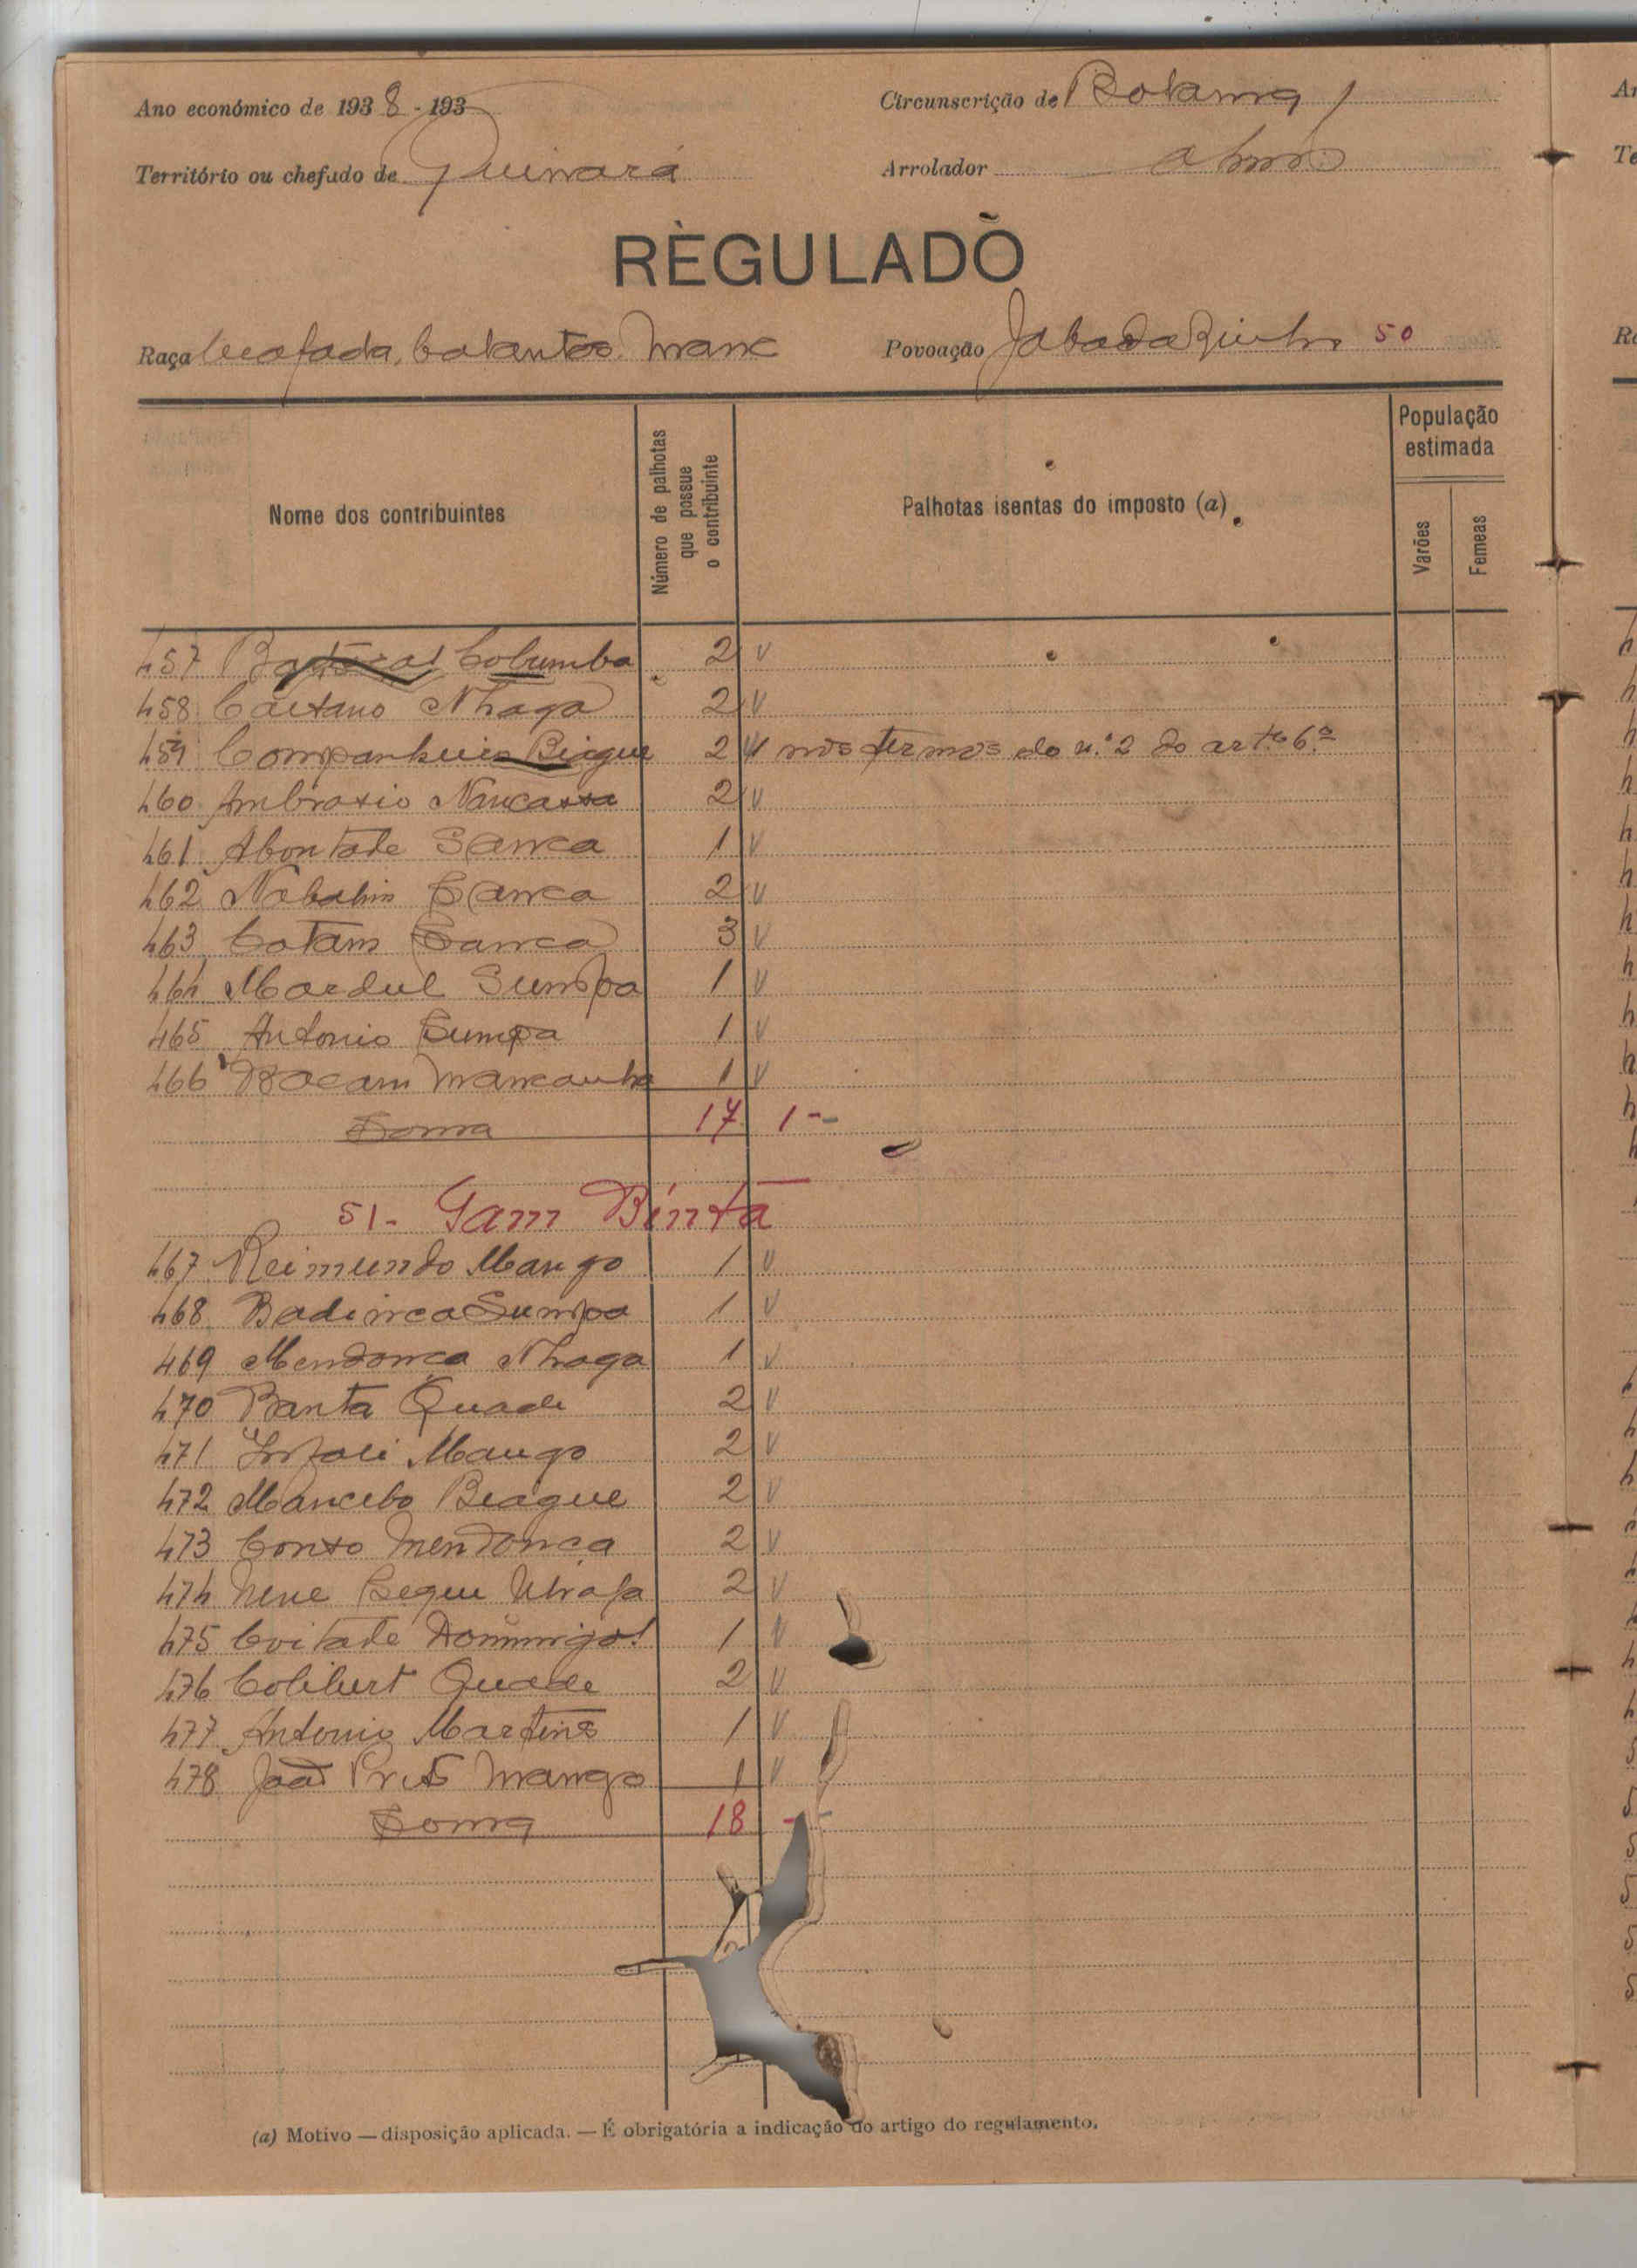 Ano económico de 1938 - 193
Circunscrição de Bolama
Território ou chefado de Quinará
Arrolador
REGULADO
Raça Beafada, Balantas. Manc
Povoação Jabadazinho 50
Nome dos contribuintes
Número de palhotas que possue o contribuinte
Palhotas isentas do imposto (a)
População estimada
Varões
Femeas
457 Columba 2 v
458 Caetano Nhaga 2 v
459 Companheiro Biague 2 nos termos do n.º 2 do art.º 6.º
460 Ambrosio Nancassa 2 v
461 Abontade Sanca 1 v
462 Sanca 2 v
463 Cotam Sanca 3 v
464 Sumpa 1 v
465 Antonio Sumpa 1 v
466 Mancanha 1 v
Soma 17 1 -
51- Gam Bintã
467 Reimundo Mango 1 v
468 Badinca Sumpa 1 v
469 Mendonça Nhaga 1 v
470 Banta Quade 2 v
471 Mango 2 v
472 Mancebo Biague 2 v
473 Mendonça 2 v
474 Nene 2 v
475 Domingos 1 v
476 Quade 2 v
477 Antonio Martins 1 v
478 João Mango 1 v
Soma 18 -
(a) Motivo — disposição aplicada. — É obrigatória a indicação do artigo do regulamento.